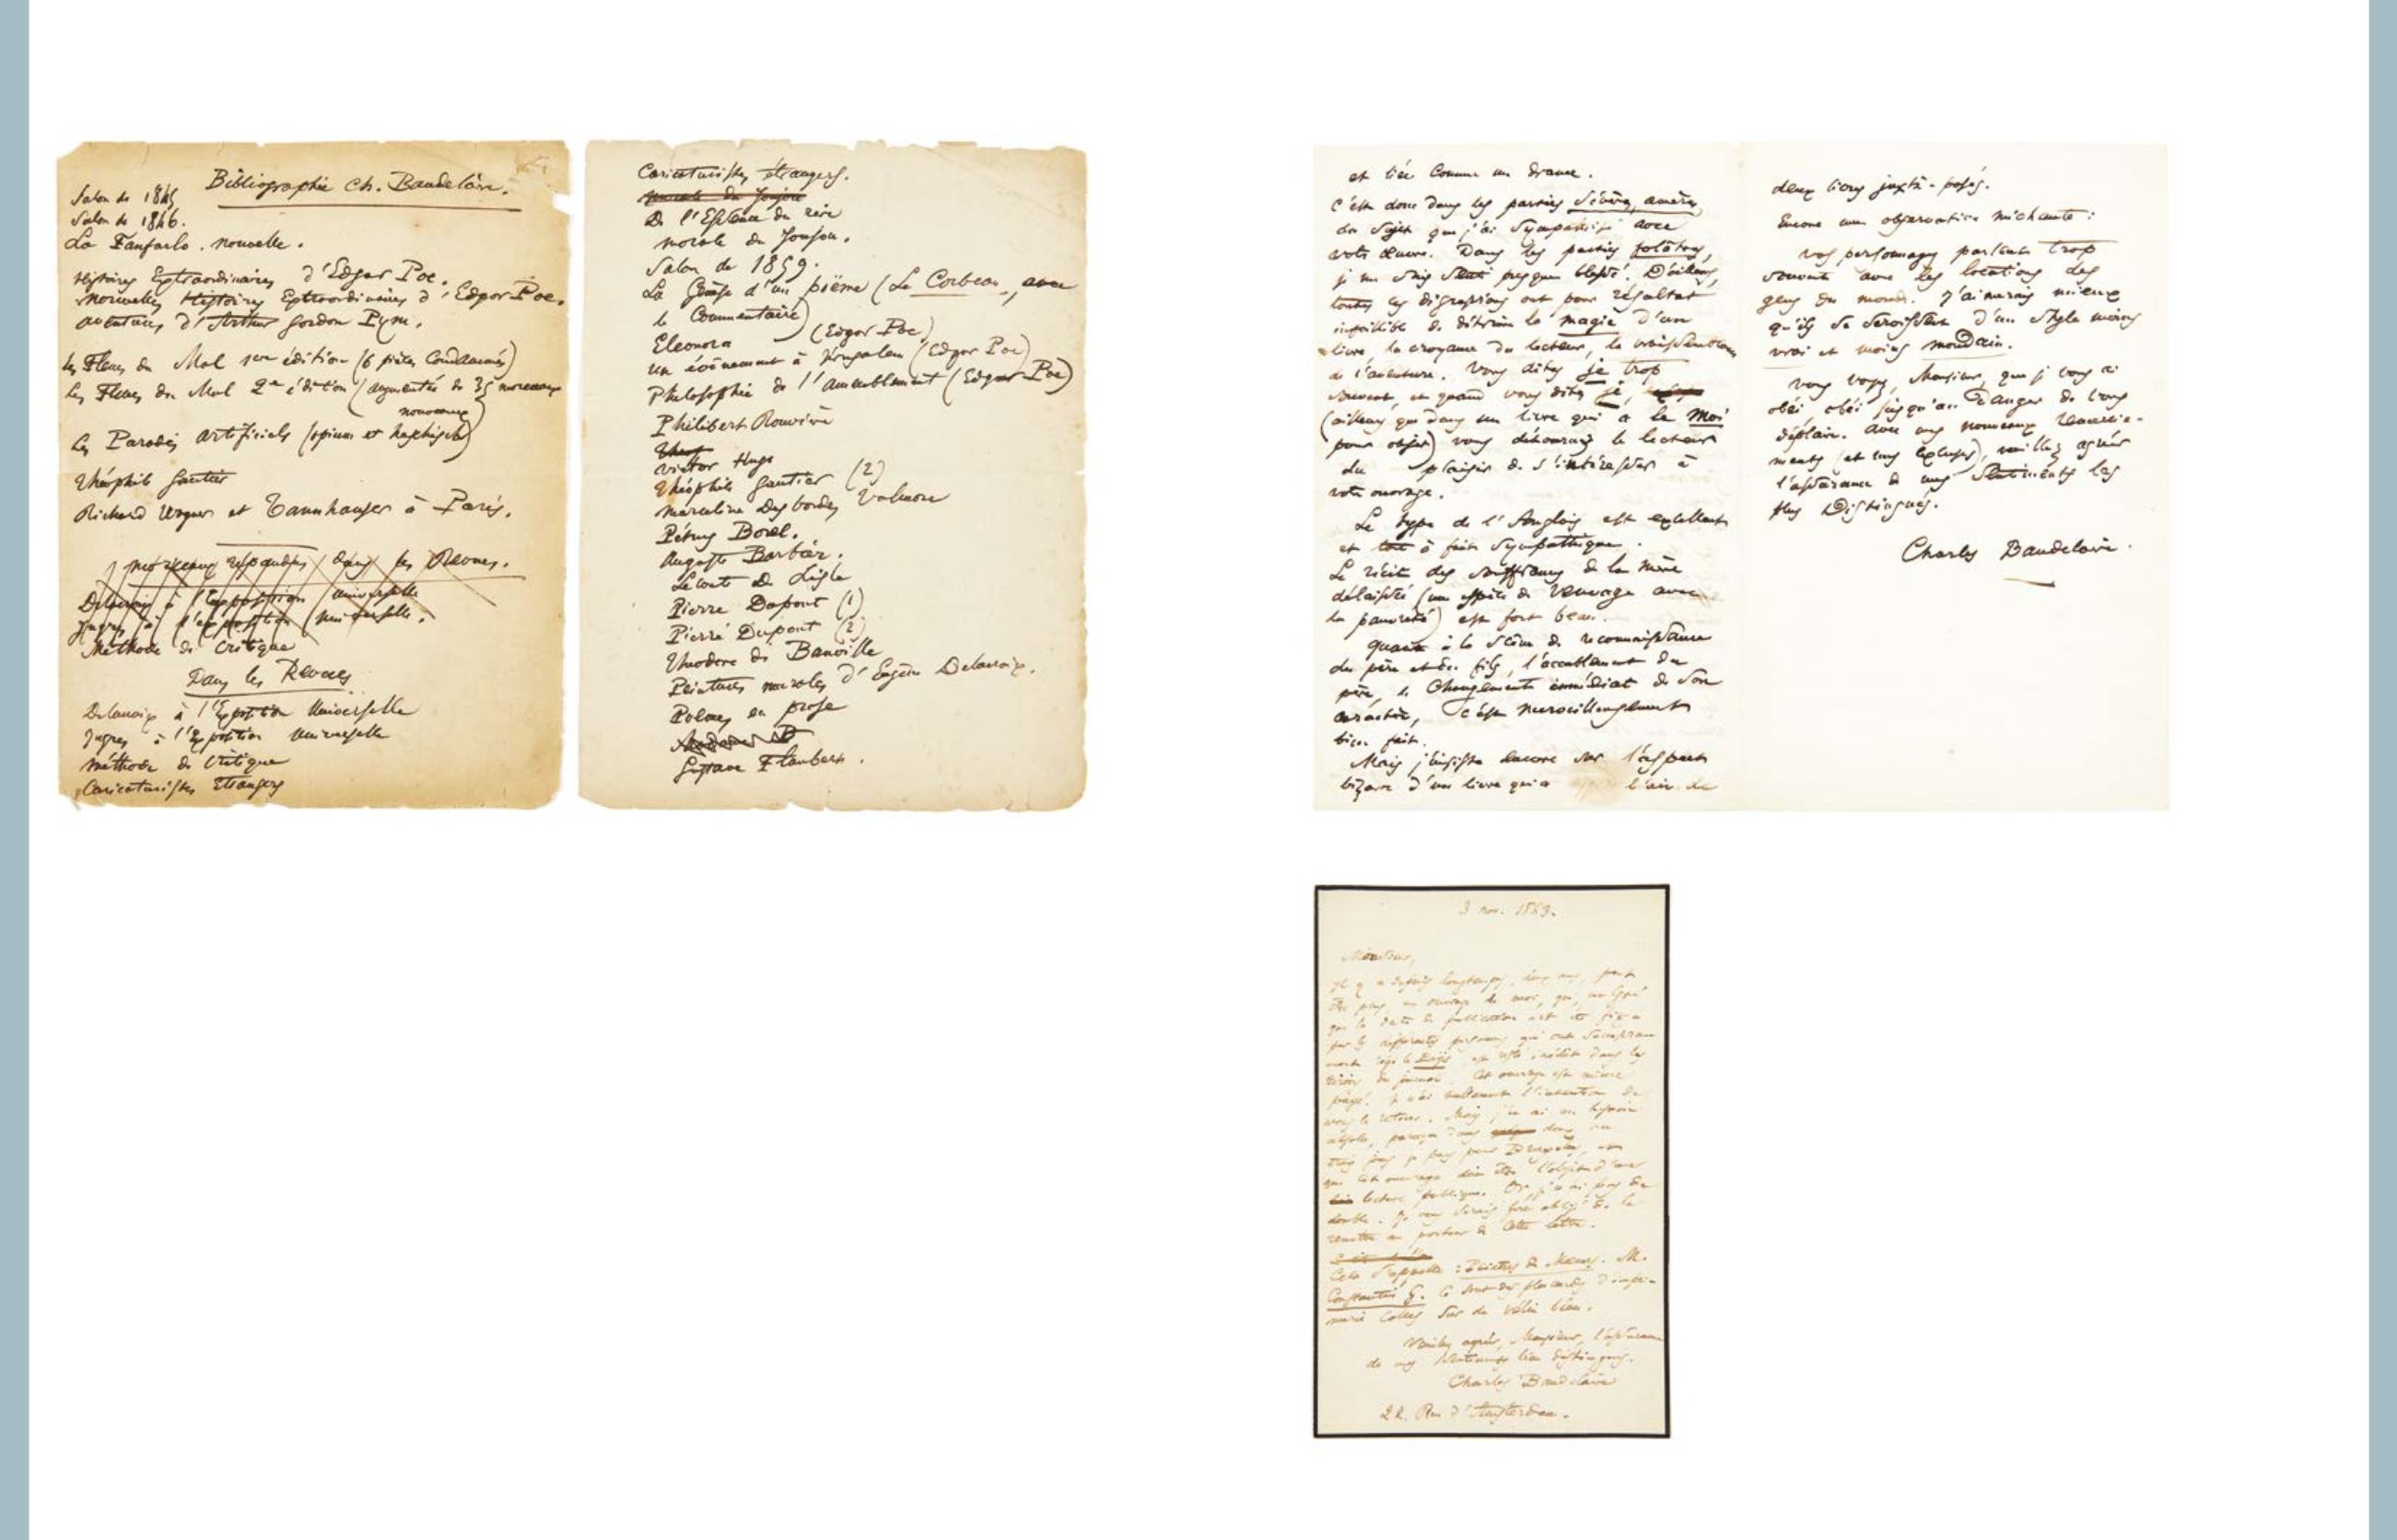 Bibliographie Ch. Baudelaire.
Salon de 1845
Salon de 1846.
La Fanfarlo. nouvelle.
Histoires Extraordinaires d'Edgar Poe.
Nouvelles Histoires Extraordinaires d'Edgar Poe.
aventures d'Arthur Gordon Pym.
les Fleurs du Mal 1ere édition (6 pièces condamnées)
les Fleurs du Mal 2e édition (augmentées de 35 morceaux
nouveaux)
les Paradis artificiels (opium et haschisch)
Théophile Gautier
Richard Wagner et Tannhauser à Paris.
morceaux répandus dans les Revues.
Delacroix à l'exposition universelle
Ingres à l'exposition universelle.
Méthode de critique
Dans les Revues
Delacroix à l'Exposition Universelle
Ingres à l'Exposition Universelle
Méthode de Critique
Caricaturistes Etrangers
Caricaturistes étrangers.
morale du Joujou
De l'Essence du rire
morale du Joujou.
Salon de 1859.
La Genèse d'un poëme (Le Corbeau, avec
le Commentaire)
Eleonora (Edgar Poe)
un événement à Jérusalem (Edgar Poe)
Philosophie de l'ameublement (Edgar Poe)
Philibert Rouvière
Victor Hugo
Théophile Gautier (2)
Marceline Desbordes Valmore
Pétrus Borel.
Auguste Barbier.
Leconte de Lisle
Pierre Dupont (1)
Pierre Dupont (2)
Théodore de Banville
Peintures murales d'Eugène Delacroix.
Poëmes en prose
Gustave Flaubert.
et liée comme un drame.
C'est donc dans les parties sévères, amères,
du sujet que j'ai sympathisé avec
votre œuvre. Dans les parties folâtres,
je me suis senti presque blessé. D'ailleurs,
toutes les digressions ont pour résultat
infaillible de détruire la magie d'un
livre, la croyance du lecteur, la vraisemblance
de l'aventure. Vous dites je trop
souvent, et quand vous dites je,
(ailleurs que dans un livre qui a le Moi
pour objet) vous détournez le lecteur
du plaisir de s'intéresser à
votre ouvrage.
Le type de l'Anglais est excellent
et tout à fait sympathique.
Le récit des souffrances de la mère
délaissée (une espèce de veuvage avec
la pauvreté) est fort beau.
Quant à la scène de reconnaissance
du père et du fils, l'accablement du
père, le changement immédiat de son
caractère, c'est merveilleusement
bien fait.
Mais j'insiste encore sur l'aspect
bizarre d'un livre qui a l'air de
deux livres juxta-posés.
Encore une observation méchante:
vos personnages parlent trop
souvent avec les locutions des
gens du monde. J'aimerais mieux
qu'ils se servissent d'un style moins
vrai et moins mondain.
Vous voyez, Monsieur, que je vous ai
obéi, obéi jusqu'au danger de vous
déplaire. Avec mes nouveaux remercie-
ments (et mes excuses), veuillez agréer
l'assurance de mes sentiments les
plus Distingués.
Charles Baudelaire.
3 nov. 1863.
Monsieur,
Il y a depuis longtemps, deux ans, peut
être plus, un ouvrage de moi, qui, malgré
que la date de publication ait été fixée
par les différentes personnes qui ont
est resté inédit dans les
tiroirs du journal. Cet ouvrage est même
payé. Je n'ai nullement l'intention de
vous le retirer. Mais j'en ai un besoin
absolu, parce que dans deux ou
trois jours je pars pour Bruxelles, où
cet ouvrage doit être l'objet d'une
lecture publique. Or, je n'ai pas de
double. Je vous serais fort obligé de le
remettre au porteur de cette lettre.
Cela s'appelle: Peintres de Mœurs. M.
Constantin G. Ce sont des placards d'impri-
merie collés sur du vélin bleu.
Veuillez agréer, Monsieur, l'assurance
de mes sentiments bien distingués.
Charles Baudelaire
22. Rue d'Amsterdam.